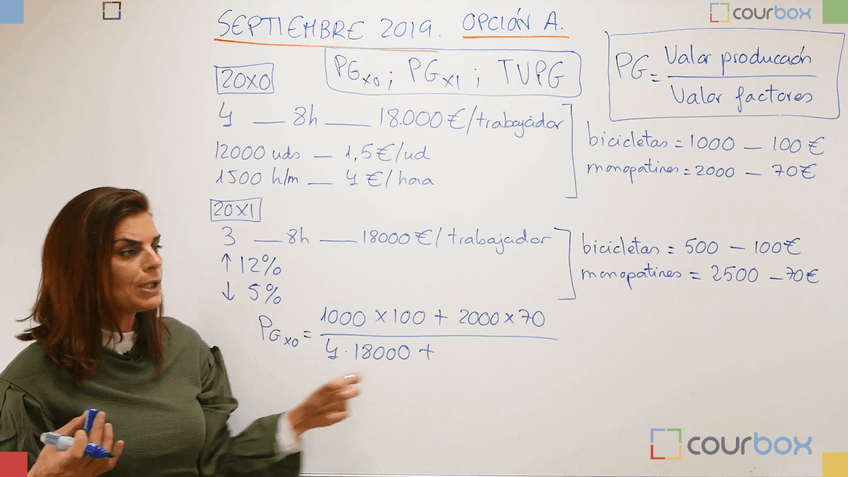 courbox
SEPTIEMBRE 2019. OPCIÓN A.
PGx0; PGx1; TVPG
PG = Valor producción / Valor factores
20X0
4 — 8h — 18.000€/trabajador
12000 uds — 1,5€/ud
1500 h/m — 4€/hora
bicicletas = 1000 — 100€
monopatines = 2000 — 70€
20X1
3 — 8h — 18000€/trabajador
↑ 12%
↓ 5%
bicicletas = 500 — 100€
monopatines = 2500 — 70€
PGx0 = 1000 × 100 + 2000 × 70
4 · 18000 +
courbox